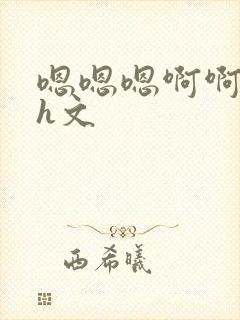 嗯嗯嗯啊啊
h文
西希曦